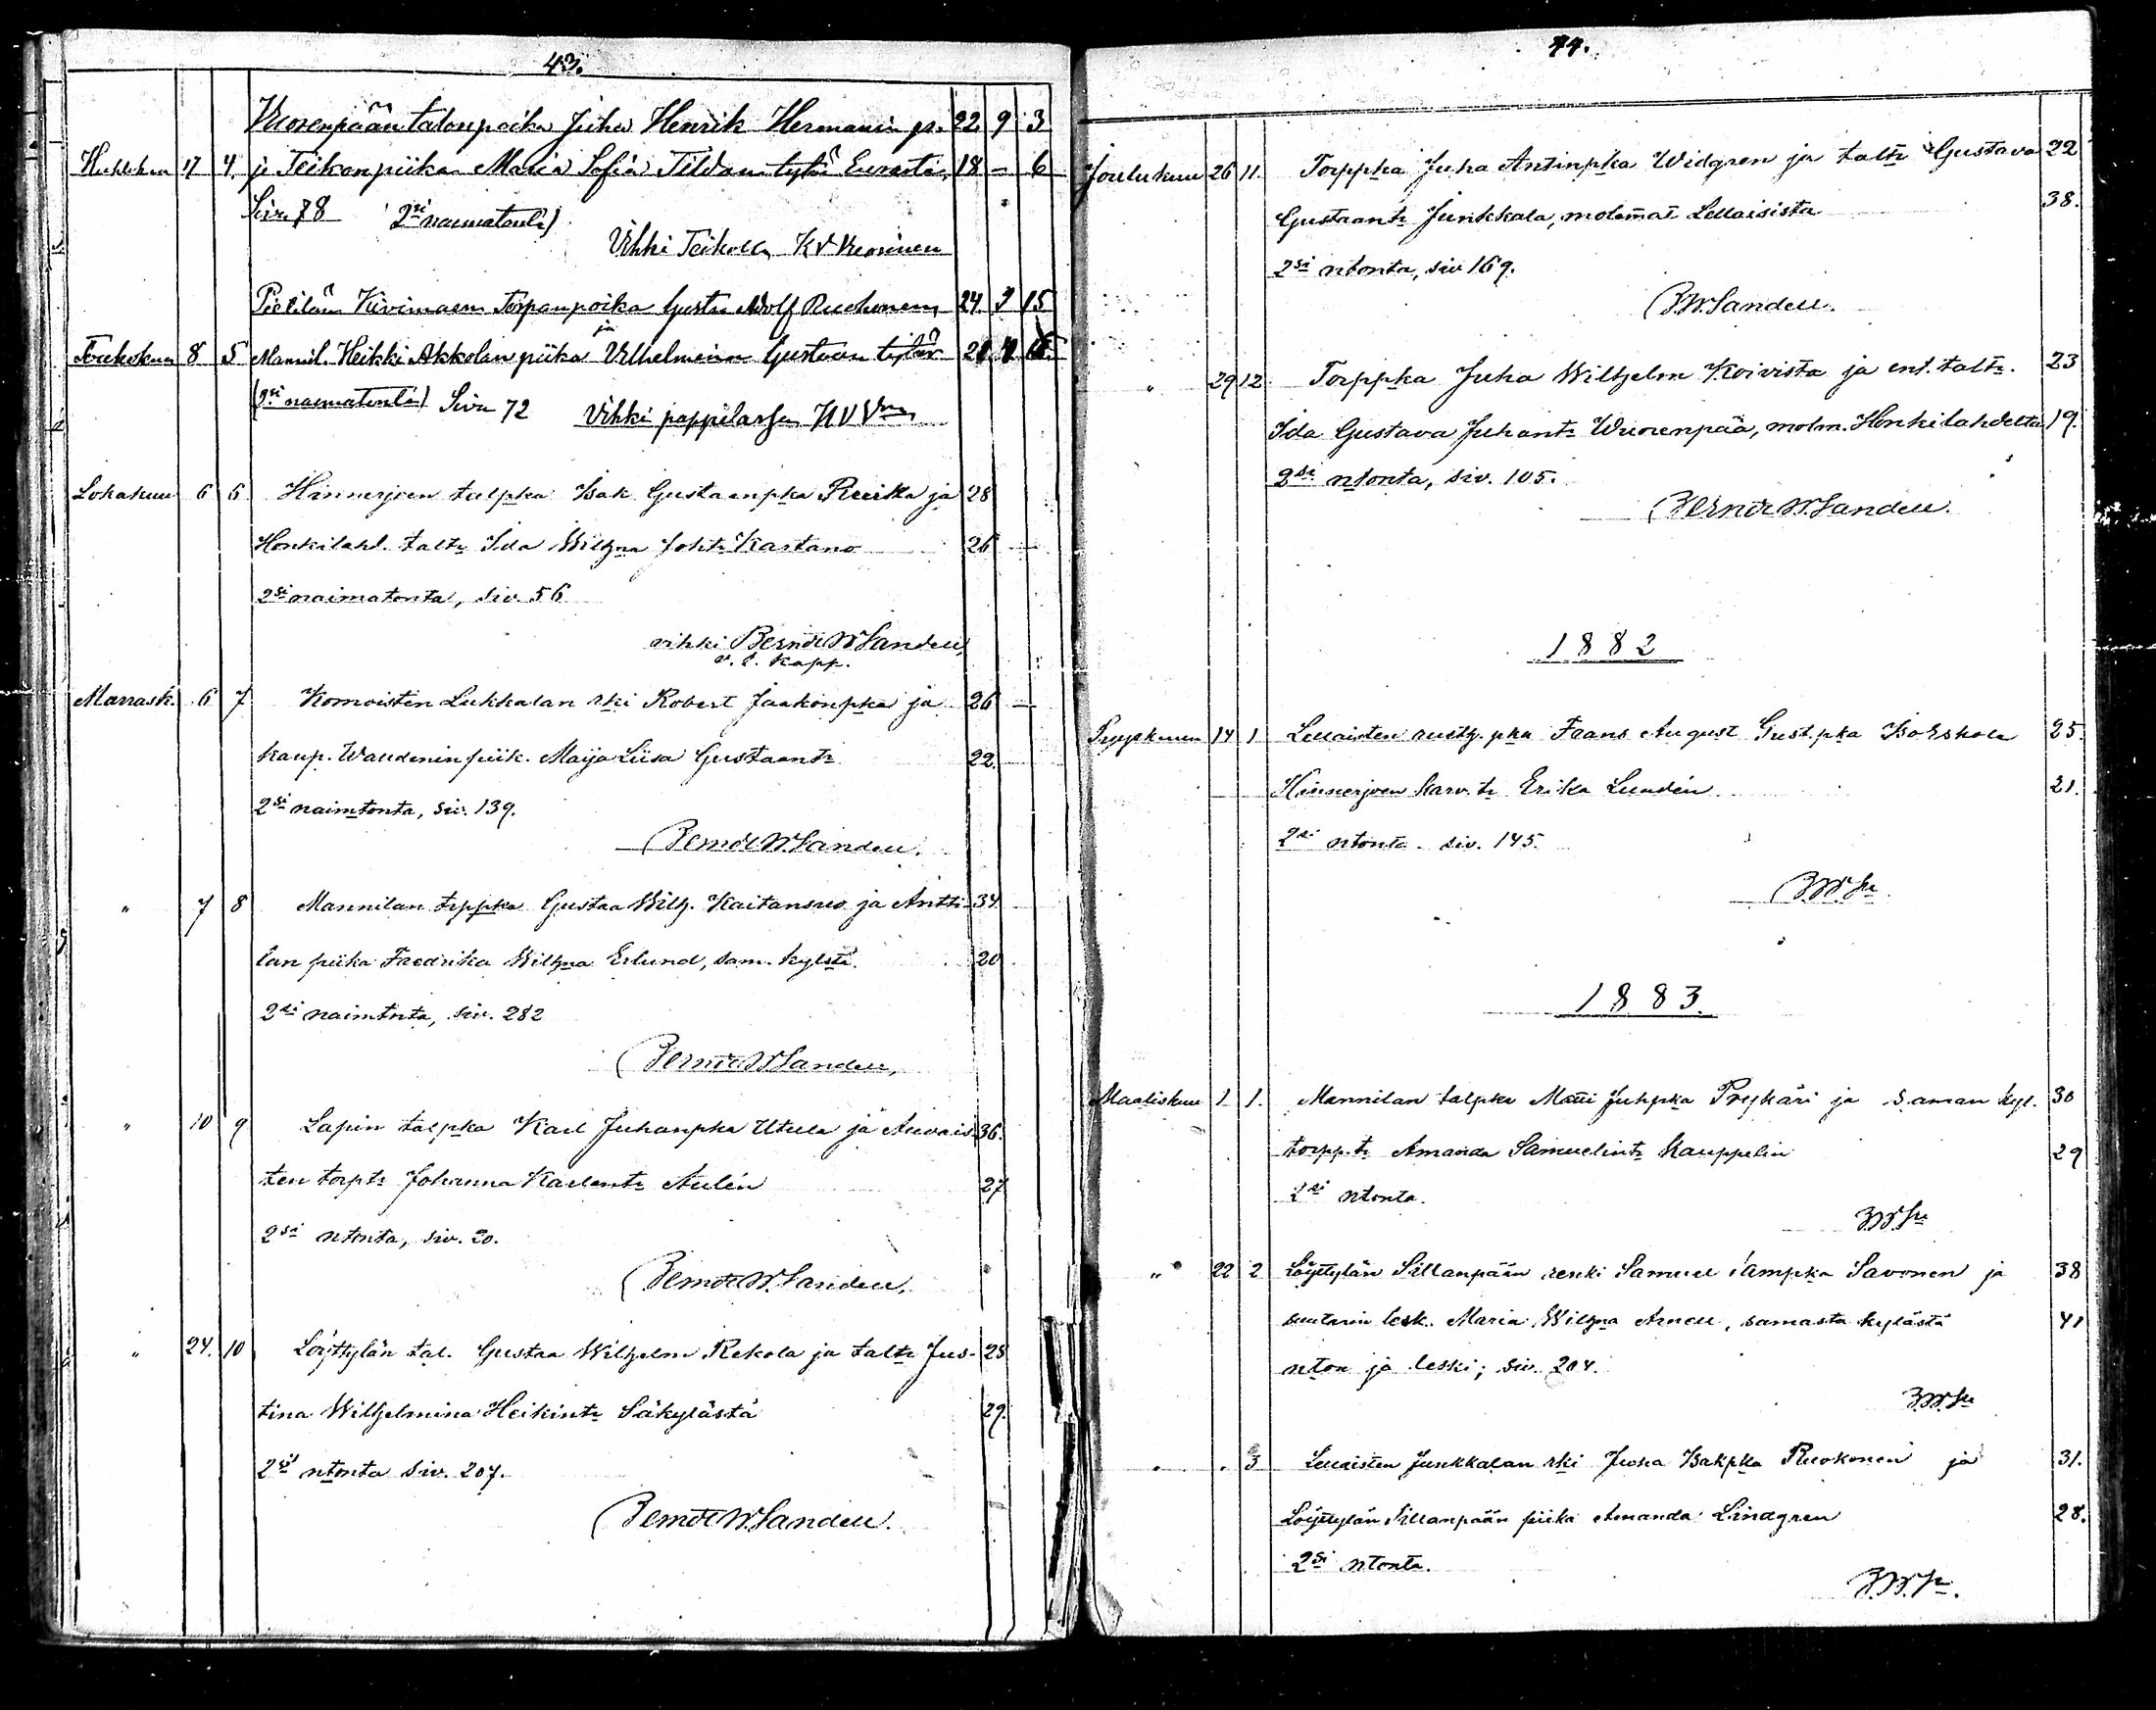 43.
Vuorenpään talonpoika Juha Henrik Hermanin p. 22 9 3
Huhtikuu 17 4 ja Teikon piika Maria Sofia tytär Eurasta, 18 – 6
Sivu 78 2si naimatonta)
Vihki Teikolla KV Vuorinen
Pietilän Kivimaen Torpanpoika Gusta Adolf Ruohonen, 24 15
ja
Toukokuu 8 5 Mannil. Heikki Akkolan piika Vilhelmiina Gustaan tytär
(2si naimatonta) Sivu 72 Vihki pappilassa KV Vnen
Lokakuu 6 6 Hinnerjoen talpka Isak Gustaanpka Ruika ja 28
Honkilahd. taltr Ida Wilhna Johtr Kartano 26
2si naimatonta, siv. 56
vihki Berndt W Sandell,
v. t. kapp.
Marrask. 6 7 Komoisten Lukkalan rki Robert Jaakonpka ja 26
kaup. piik. Maija Liisa Gustaantr 22.
2si naimtonta, siv. 139.
Berndt W. Sandell.
" 7 8 Mannilan trppka Gustaa Wilh. Kaitansuo ja Antti- 34
lan piika Fredrika Wilhna Erlund, sam. kylstä. 20
2si naimtnta, siv. 282
Berndt W Sandell,
" 10 9 Lapin talpka Karl Juhanpka Utula ja Auvais- 36.
ten torptr Johanna Karlentr Aulin 27
2si ntonta, siv. 20.
Berndt W. Sandell,
" 24. 10 Löyttylän tal. Gustaa Wilhelm Rekola ja taltr Jus- 28
tina Wilhelmina Heikintr Säkylästä 29.
2si ntonta siv. 207.
Berndt W. Sandell.
44.
Joulukuu 26 11. Torppka Juha Antinpka Widgren ja taltr Gustava 22
Gustaantr Junkkala, molemat Lellaisista 38.
2si ntonta, siv 169.
B.W. Sandell.
" 29 12. Torppka Juha Wilhelm Koivisto ja ent. taltr. 23
Ida Gustava Juhantr Wuorenpää, molm. Honkilahdelta 19.
2si ntonta, siv. 105.
Berndt W. Sandell.
1882
Syyskuun 14 1 Lellaisten rusth. pka Frans August Gust.pka Isorskola 25.
Hinnerjoen karv. tr Erika Lundén 21.
2si ntonta siv. 145.
B.W. Sll
1883.
Maaliskuu 1 1. Mannilan talpka Matti Juhpka Prykäri ja saman kyl. 30
torpp. tr Amanda Samuelintr Kauppelin 29
2si ntonta.
B.W. Sll
" 22 2 Löyttylän Sillanpään renki Samuel Sampka Savonen ja 38
suutarin lesk. Maria Wilhna Arnell, samasta kylästä 41
nton ja leski; siv. 204.
B.W. Sll
" " 3 Lellaisten Junkkalan rki Juha Isakpka Ruokonen ja 31.
Löyttylän Sillanpään piika Amanda Lindgren 28.
2si ntonta.
B.W. Sll.